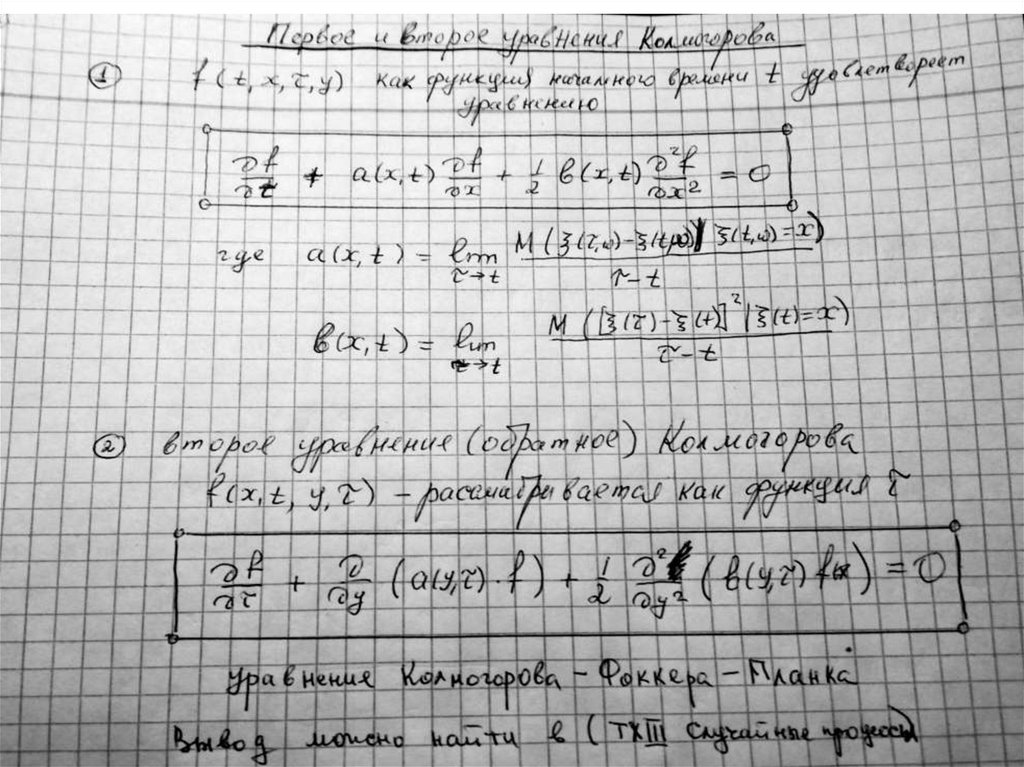 Первое и второе уравнения Колмогорова
① f(t, x, τ, y) как функция начального времени t удовлетворяет
уравнению
∂f/∂t + a(x,t) ∂f/∂x + 1/2 b(x,t) ∂²f/∂x² = 0
где a(x,t) = lim τ→t M(ξ(τ,ω)-ξ(t,ω) | ξ(t,ω)=x) / τ-t
b(x,t) = lim τ→t M([ξ(τ)-ξ(t)]² | ξ(t)=x) / τ-t
② второе уравнение (обратное) Колмогорова
f(x,t, y,τ) – рассматривается как функция τ
∂f/∂τ + ∂/∂y (a(y,τ)·f) + 1/2 ∂²/∂y² (b(y,τ) f) = 0
уравнение Колмогорова – Фоккера – Планка
Вывод можно найти в (TXIII Случайные процессы)